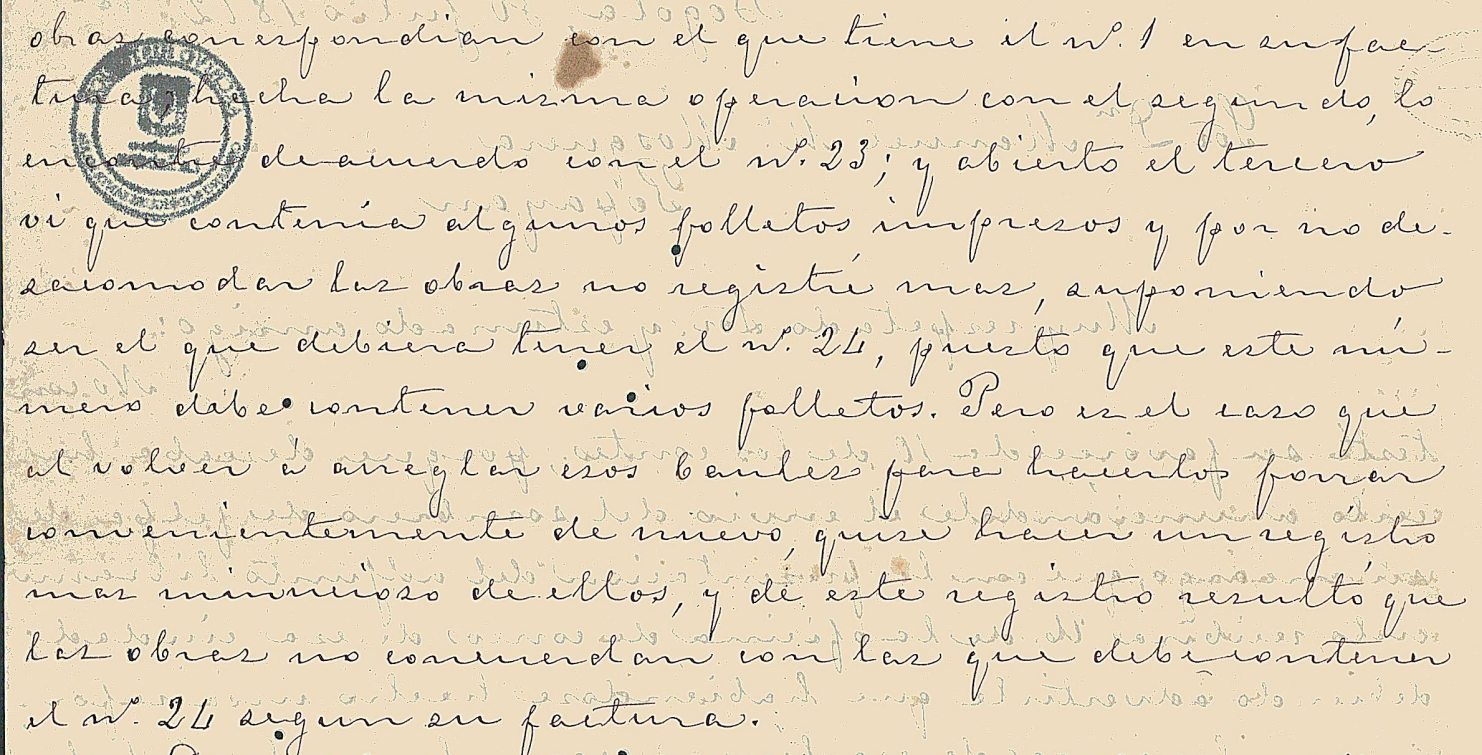 obras correspondian con el que tiene el nº. 1 en su fac-
tura; hecha la misma operacion con el segundo, lo
encontré de acuerdo con el nº. 23; y abierto el tercero
vi que contenía algunos folletos impresos y por no de-
sacomodar las obras no registré mas, suponiendo
ser el que debiera tener el nº. 24, puesto que este nú-
mero debe contener varios folletos. Pero es el caso que
al volver á arreglar esos baules para hacerlos forrar
convenientemente de nuevo, quise hacer un registro
mas minucioso de ellos, y de este registro resultó que
las obras no concuerdan con las que debe contener
el nº. 24 segun su factura.